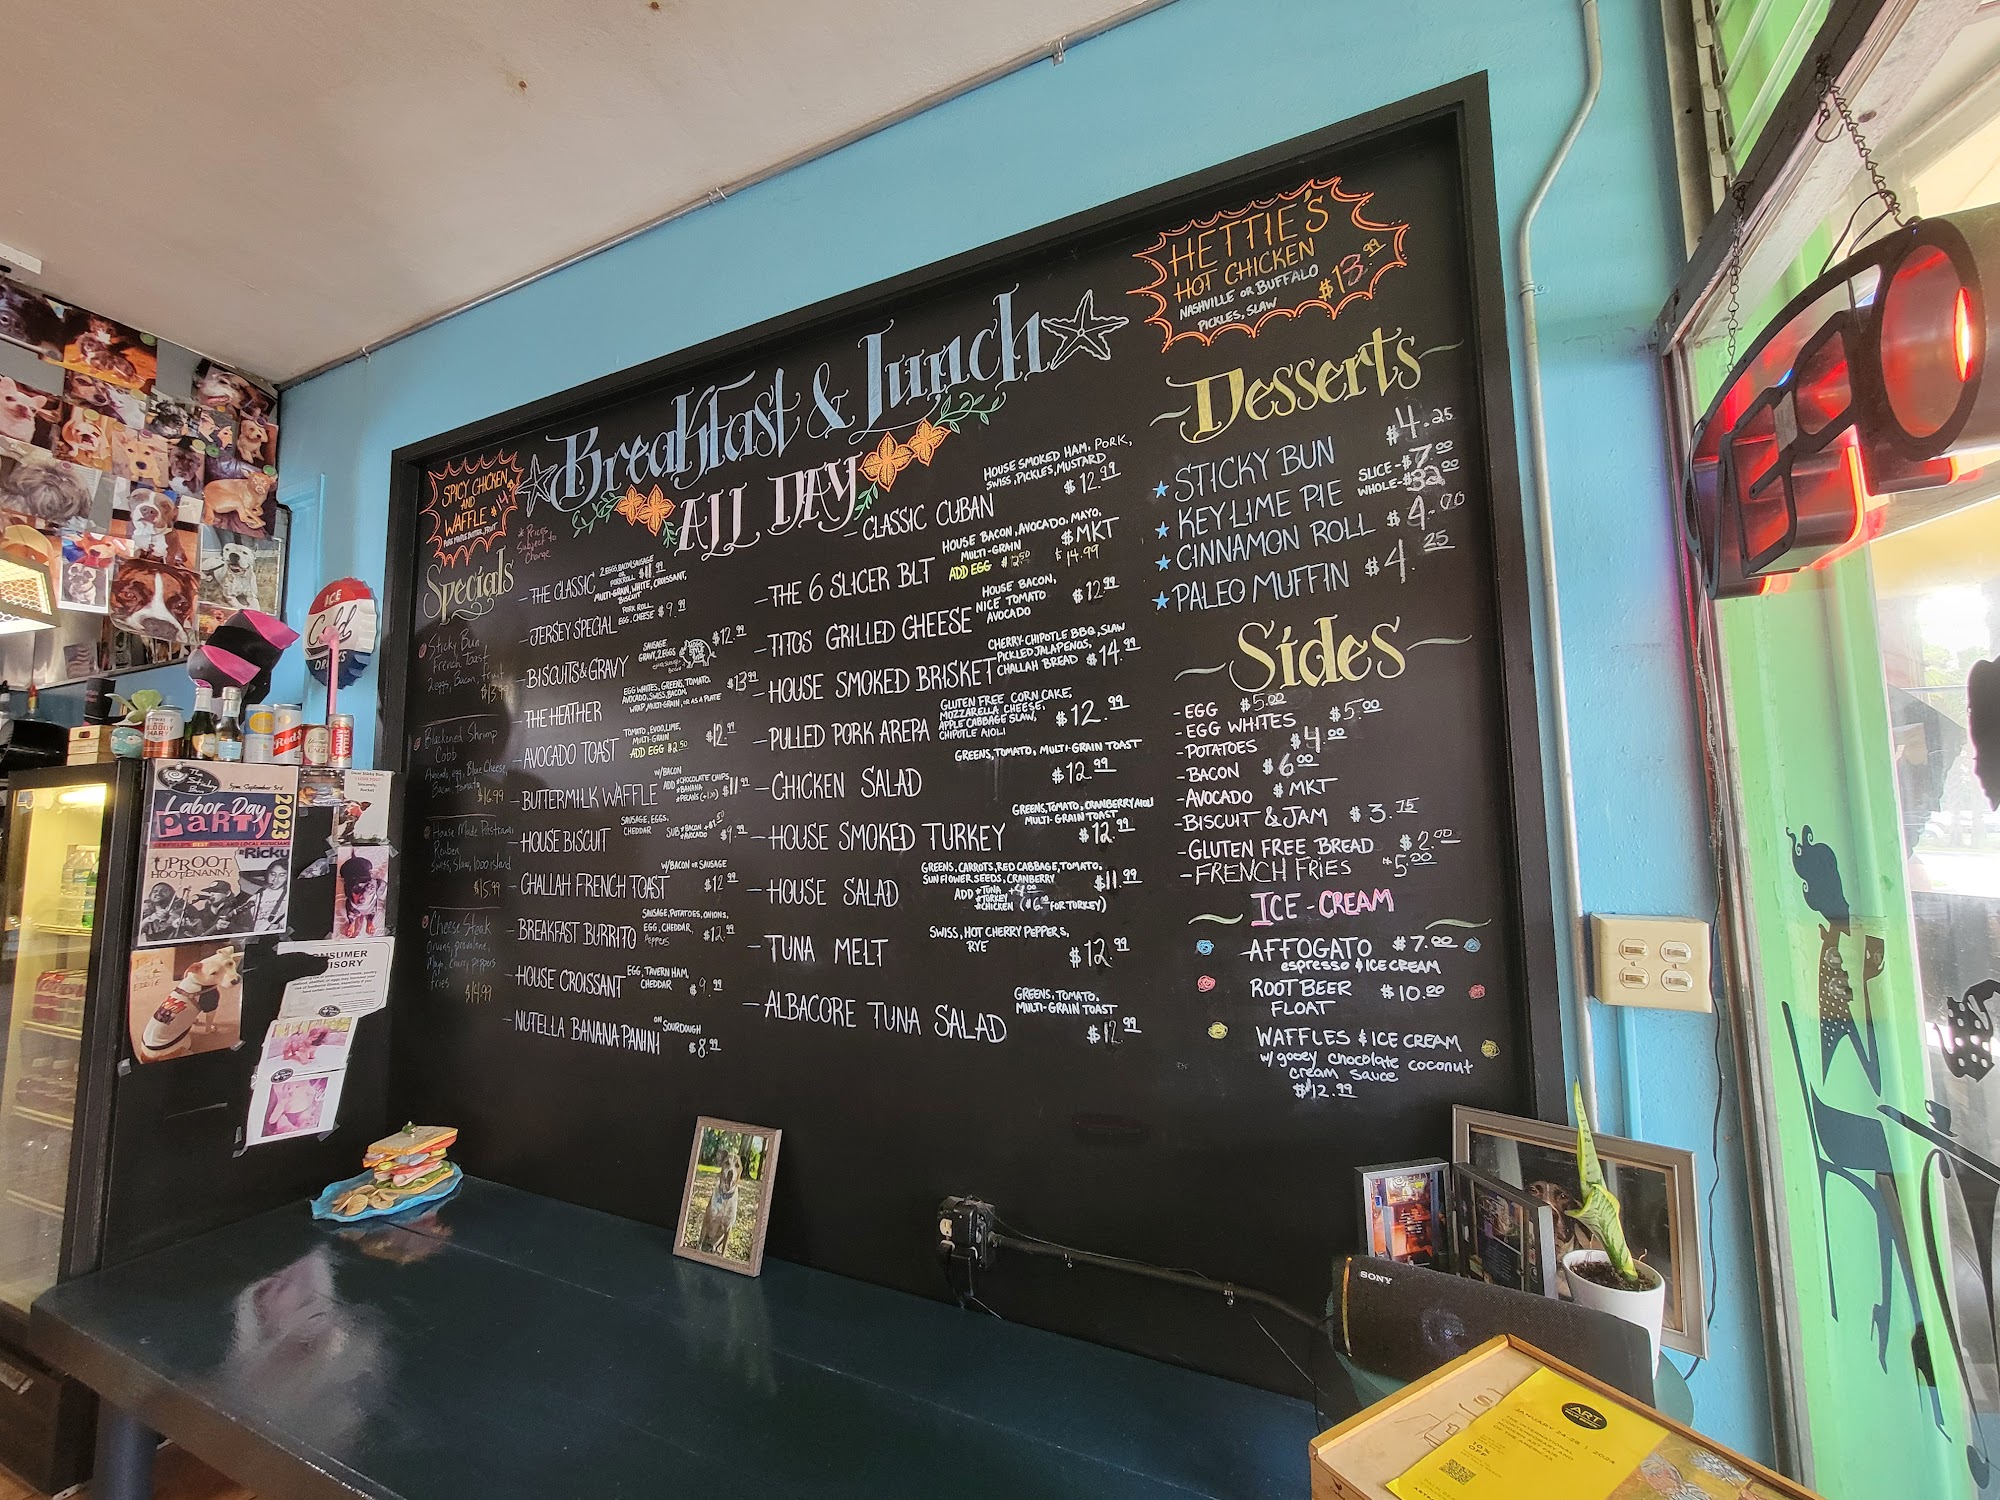 Breakfast & Lunch
ALL DAY
SPICY CHICKEN
AND
WAFFLE $14
PURE MAPLE BUTTER, FRUIT
* Prices
Subject to
Change
Specials
Sticky Bun
French Toast
2 eggs, Bacon, fruit
$13.99
Blackened Shrimp
Cobb
Avocado, egg, Blue Cheese,
Bacon, tomato
$16.99
House Made Pastrami
Reuben
Swiss, Slaw, 1000 island
$15.99
Cheese Steak
Onions, provolone,
Mayo, Cherry peppers
fries
$14.99
- THE CLASSIC 2 EGGS, BACON, SAUSAGE
OR
PORK ROLL $11.99
MULTI-GRAIN, WHITE, CROISSANT,
BISCUIT
- JERSEY SPECIAL PORK ROLL
EGG, CHEESE $9.99
- BISCUITS & GRAVY SAUSAGE
GRAVY, 2 EGGS $12.99
- THE HEATHER EGG WHITES, GREENS, TOMATO,
AVOCADO, SWISS, BACON
WRAP, MULTI-GRAIN, OR AS A PLATE $13.99
- AVOCADO TOAST TOMATO, EVOO, LIME,
MULTI-GRAIN $12.99
ADD EGG $2.50
- BUTTERMILK WAFFLE W/BACON
ADD * CHOCOLATE CHIPS,
* BANANA
* PECANS (+1.00) $11.99
- HOUSE BISCUIT SAUSAGE, EGGS,
CHEDDAR SUB * BACON + $1.50
* AVOCADO $9.99
- CHALLAH FRENCH TOAST W/BACON OR SAUSAGE
$12.99
- BREAKFAST BURRITO SAUSAGE, POTATOES, ONIONS,
EGG, CHEDDAR,
Peppers $12.99
- HOUSE CROISSANT EGG, TAVERN HAM,
CHEDDAR $9.99
- NUTELLA BANANA PANINI ON SOURDOUGH
$8.99
- CLASSIC CUBAN HOUSE SMOKED HAM, PORK,
SWISS, PICKLES, MUSTARD
$12.99
- THE 6 SLICER BLT HOUSE BACON, AVOCADO, MAYO,
MULTI-GRAIN $MKT
ADD EGG $14.99
- TITOS GRILLED CHEESE HOUSE BACON,
NICE TOMATO
AVOCADO $12.99
- HOUSE SMOKED BRISKET CHERRY-CHIPOTLE BBQ, SLAW
PICKLED JALAPENOS,
CHALLAH BREAD $14.99
- PULLED PORK AREPA GLUTEN FREE CORN CAKE,
MOZZARELLA CHEESE,
APPLE CABBAGE SLAW,
CHIPOTLE AIOLI $12.99
- CHICKEN SALAD GREENS, TOMATO, MULTI-GRAIN TOAST
$12.99
- HOUSE SMOKED TURKEY GREENS, TOMATO, CRANBERRY AIOLI
MULTI-GRAIN TOAST
$12.99
- HOUSE SALAD GREENS, CARROTS, RED CABBAGE, TOMATO,
SUNFLOWER SEEDS, CRANBERRY
ADD * TUNA
* TURKEY
* CHICKEN +4.00
($6.00 FOR TURKEY) $11.99
- TUNA MELT SWISS, HOT CHERRY PEPPERS,
RYE $12.99
- ALBACORE TUNA SALAD GREENS, TOMATO,
MULTI-GRAIN TOAST
$12.99
HETTIE'S
HOT CHICKEN
NASHVILLE OR BUFFALO
PICKLES, SLAW
$13.99
Desserts
STICKY BUN $4.25
KEY LIME PIE SLICE - $7.00
WHOLE - $32.00
CINNAMON ROLL $4.00
PALEO MUFFIN $4.25
Sides
- EGG $5.00
- EGG WHITES $5.00
- POTATOES $4.00
- BACON $6.00
- AVOCADO $MKT
- BISCUIT & JAM $3.75
- GLUTEN FREE BREAD $2.00
- FRENCH FRIES $5.00
ICE-CREAM
AFFOGATO $7.00
espresso & ICE CREAM
ROOTBEER
FLOAT $10.00
WAFFLES & ICE CREAM
w/ gooey chocolate coconut
cream sauce
$12.99
ICE
Cold
DRINKS
The Sticky
Bun
5pm September 3rd
Labor Day
PARTY
2023
Ricky
UPROOT
HOOTENANNY
CONSUMER
ADVISORY
SONY
ART
JANUARY 24-28 | 2024
10%
OFF